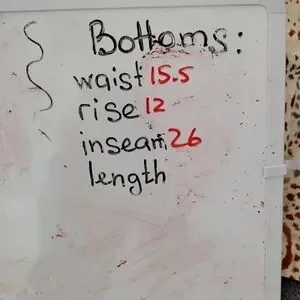 Bottoms:
waist 15.5
rise 12
inseam 26
length